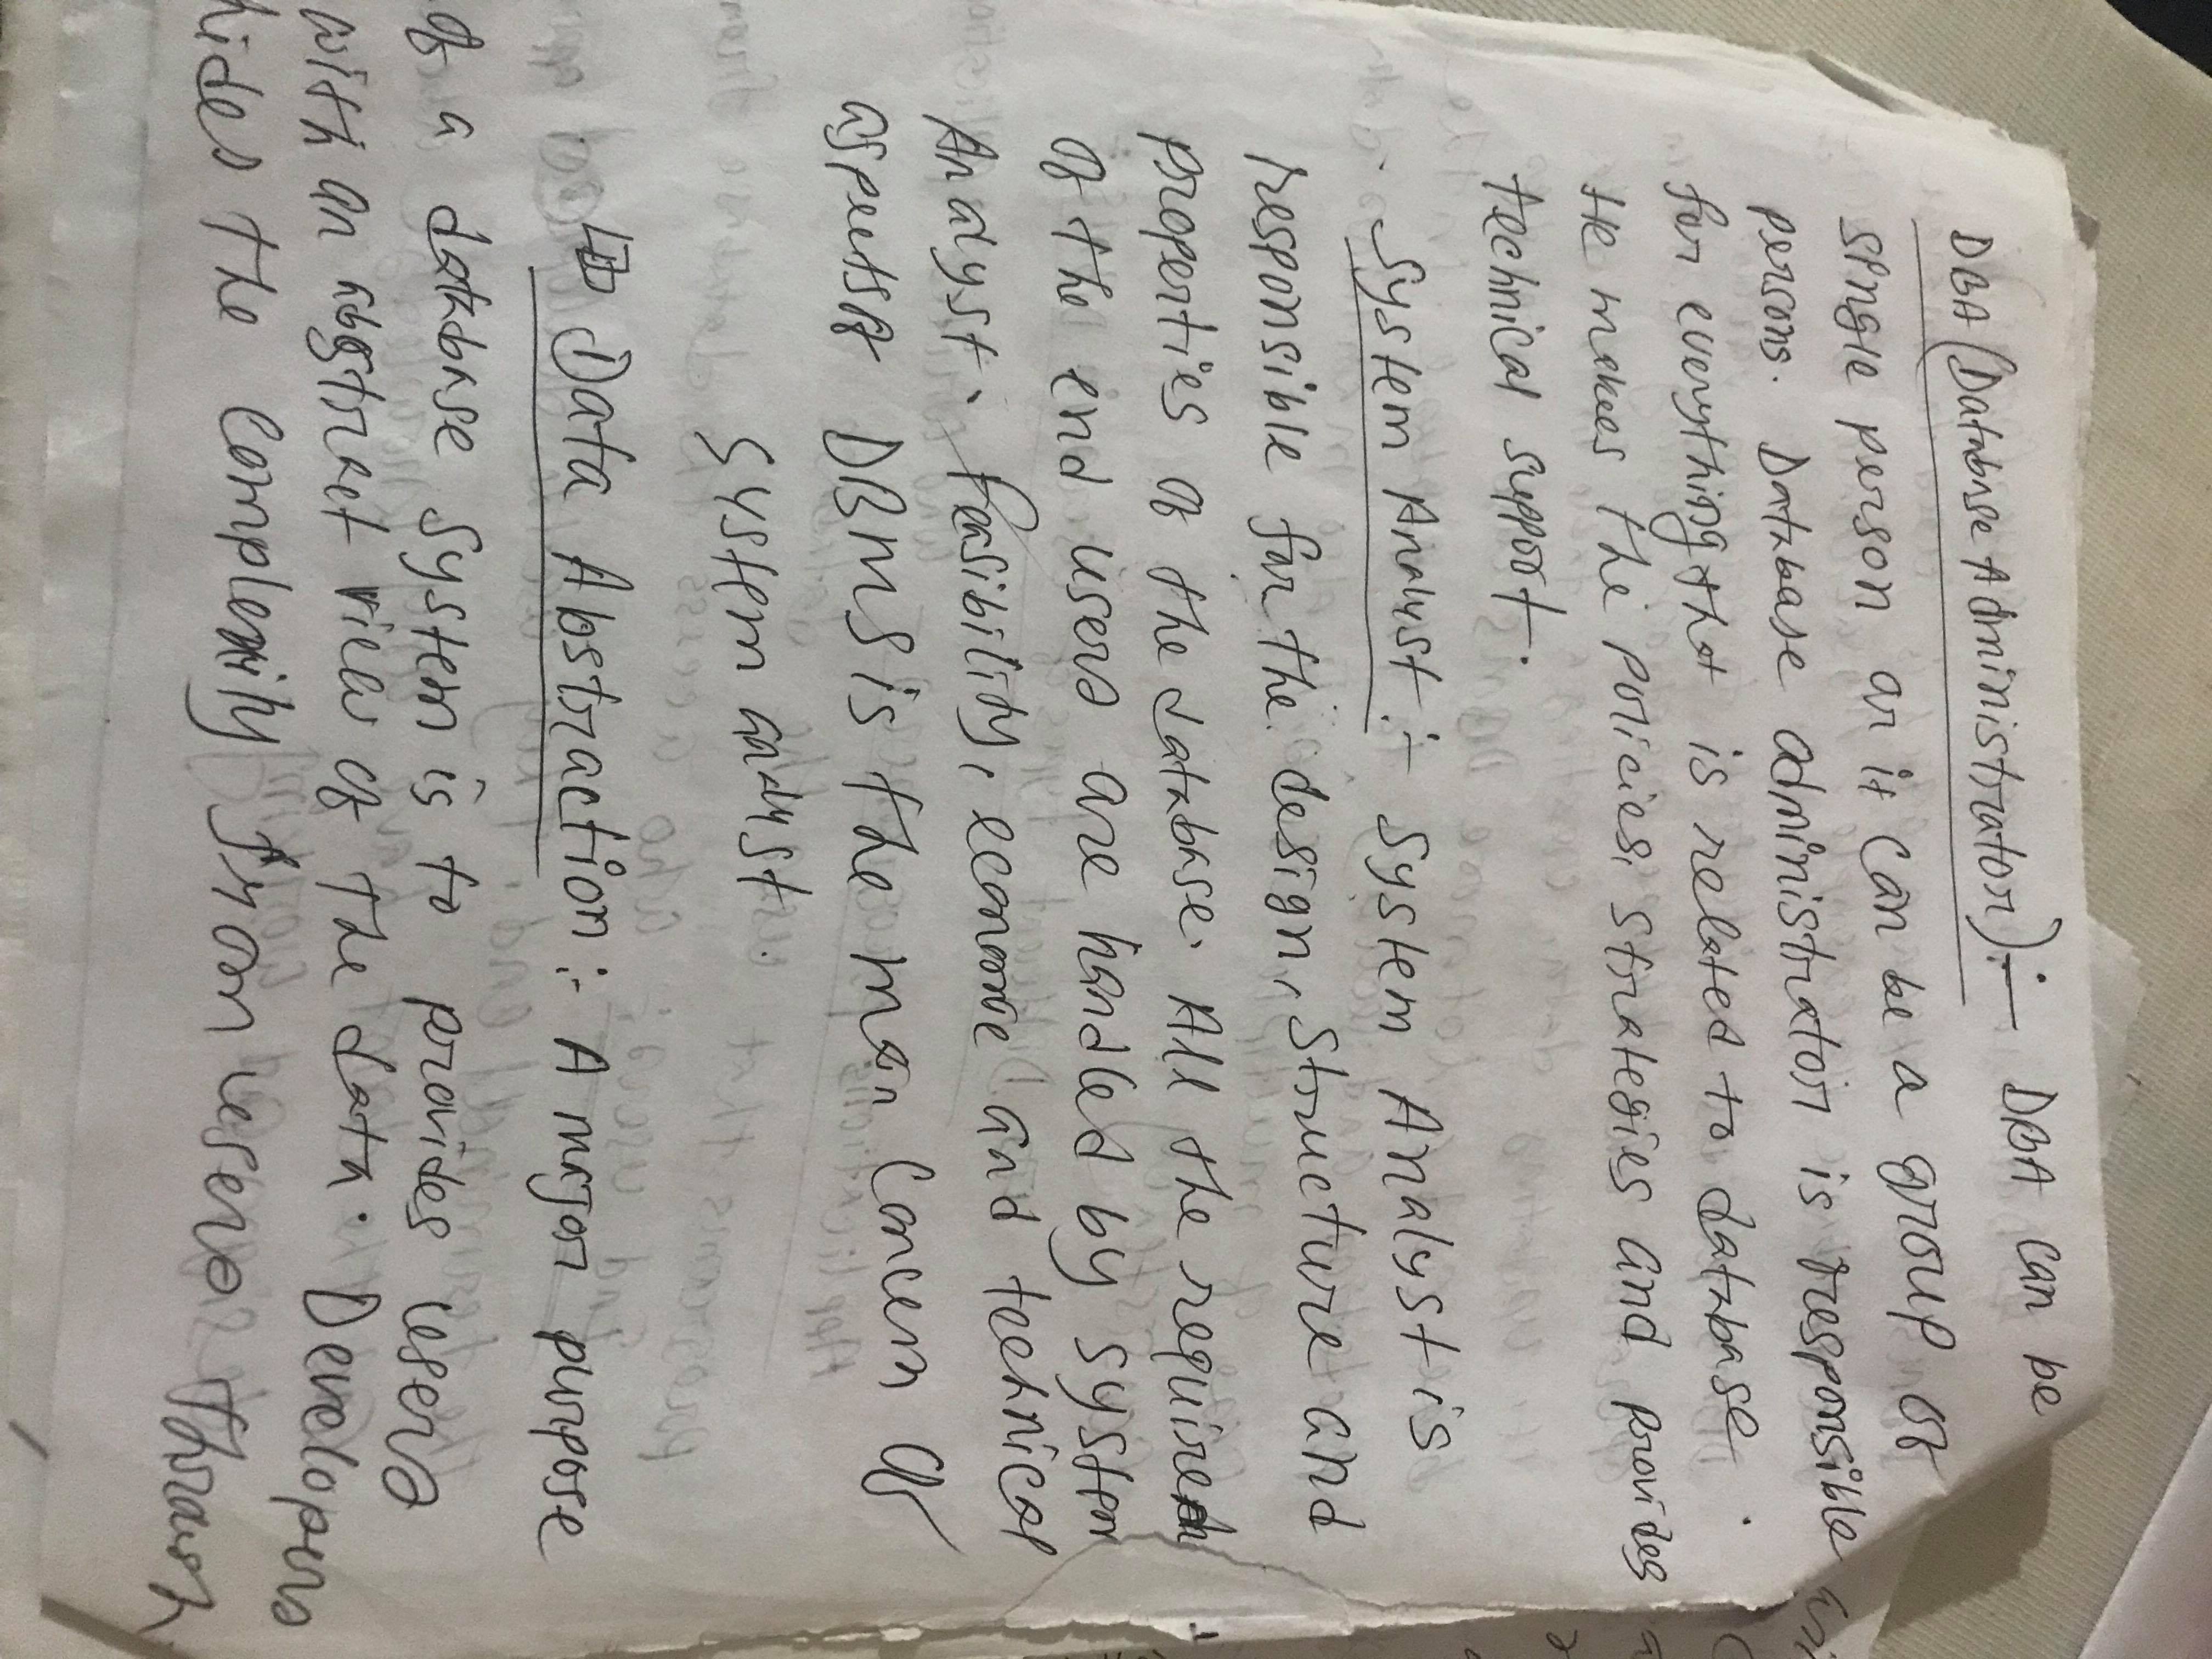 DBA (Database Administrator) :- DBA can be
single person or it can be a group of
persons. Database administrator is responsible
for everything that is related to database.
He makees the policies, strategies and provides
technical support.
System Analyst :- System Analyst is
responsible for the design, structure and
properties of the database. All the
of the end users are handled by system
Analyst. Feasibility, economic and technical
aspects of DBMS is the main concern of
system analyst.
Data Abstraction :- A major purpose
of a database system is to provides users
with an abstract view of the data. Developers
hides the complexity from users through